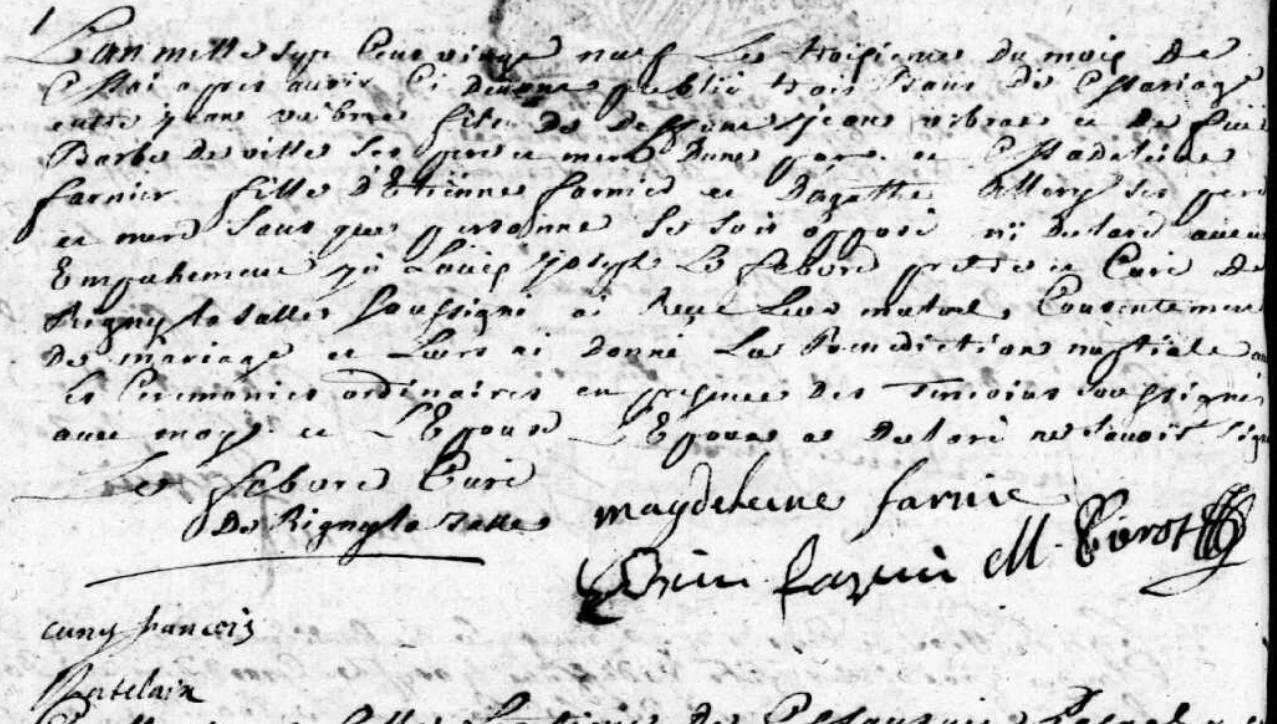 L'an mille sept Cens vingt neuf Le troisieme du mois de
Mai apres avoir Ci devant publié trois bans de Mariage
entre jean vibrat fils de deffunt jean vibrat et de feüe
Barbe de ville ses pere et mere d'une part et Madeleine
farnier fille d'Etienne farnier et d'agathe ses pere
et mere sans que personne se soit opposé ni declaré aucun
Empechement je Louis joseph Le febvre pretre et Curé de
Rigny la salle soussigné ai Reçu Leur mutuel Consentement
de mariage et Leur ai donné La Benediction nuptiale
Les Ceremonies ordinaires en presence des temoins soussignés
avec moy et L'Epouse L'Epoux a declaré ne savoir signer
Le febvre Curé
De Rigny la Salle
magdeleine farnie
M.
cuny francois